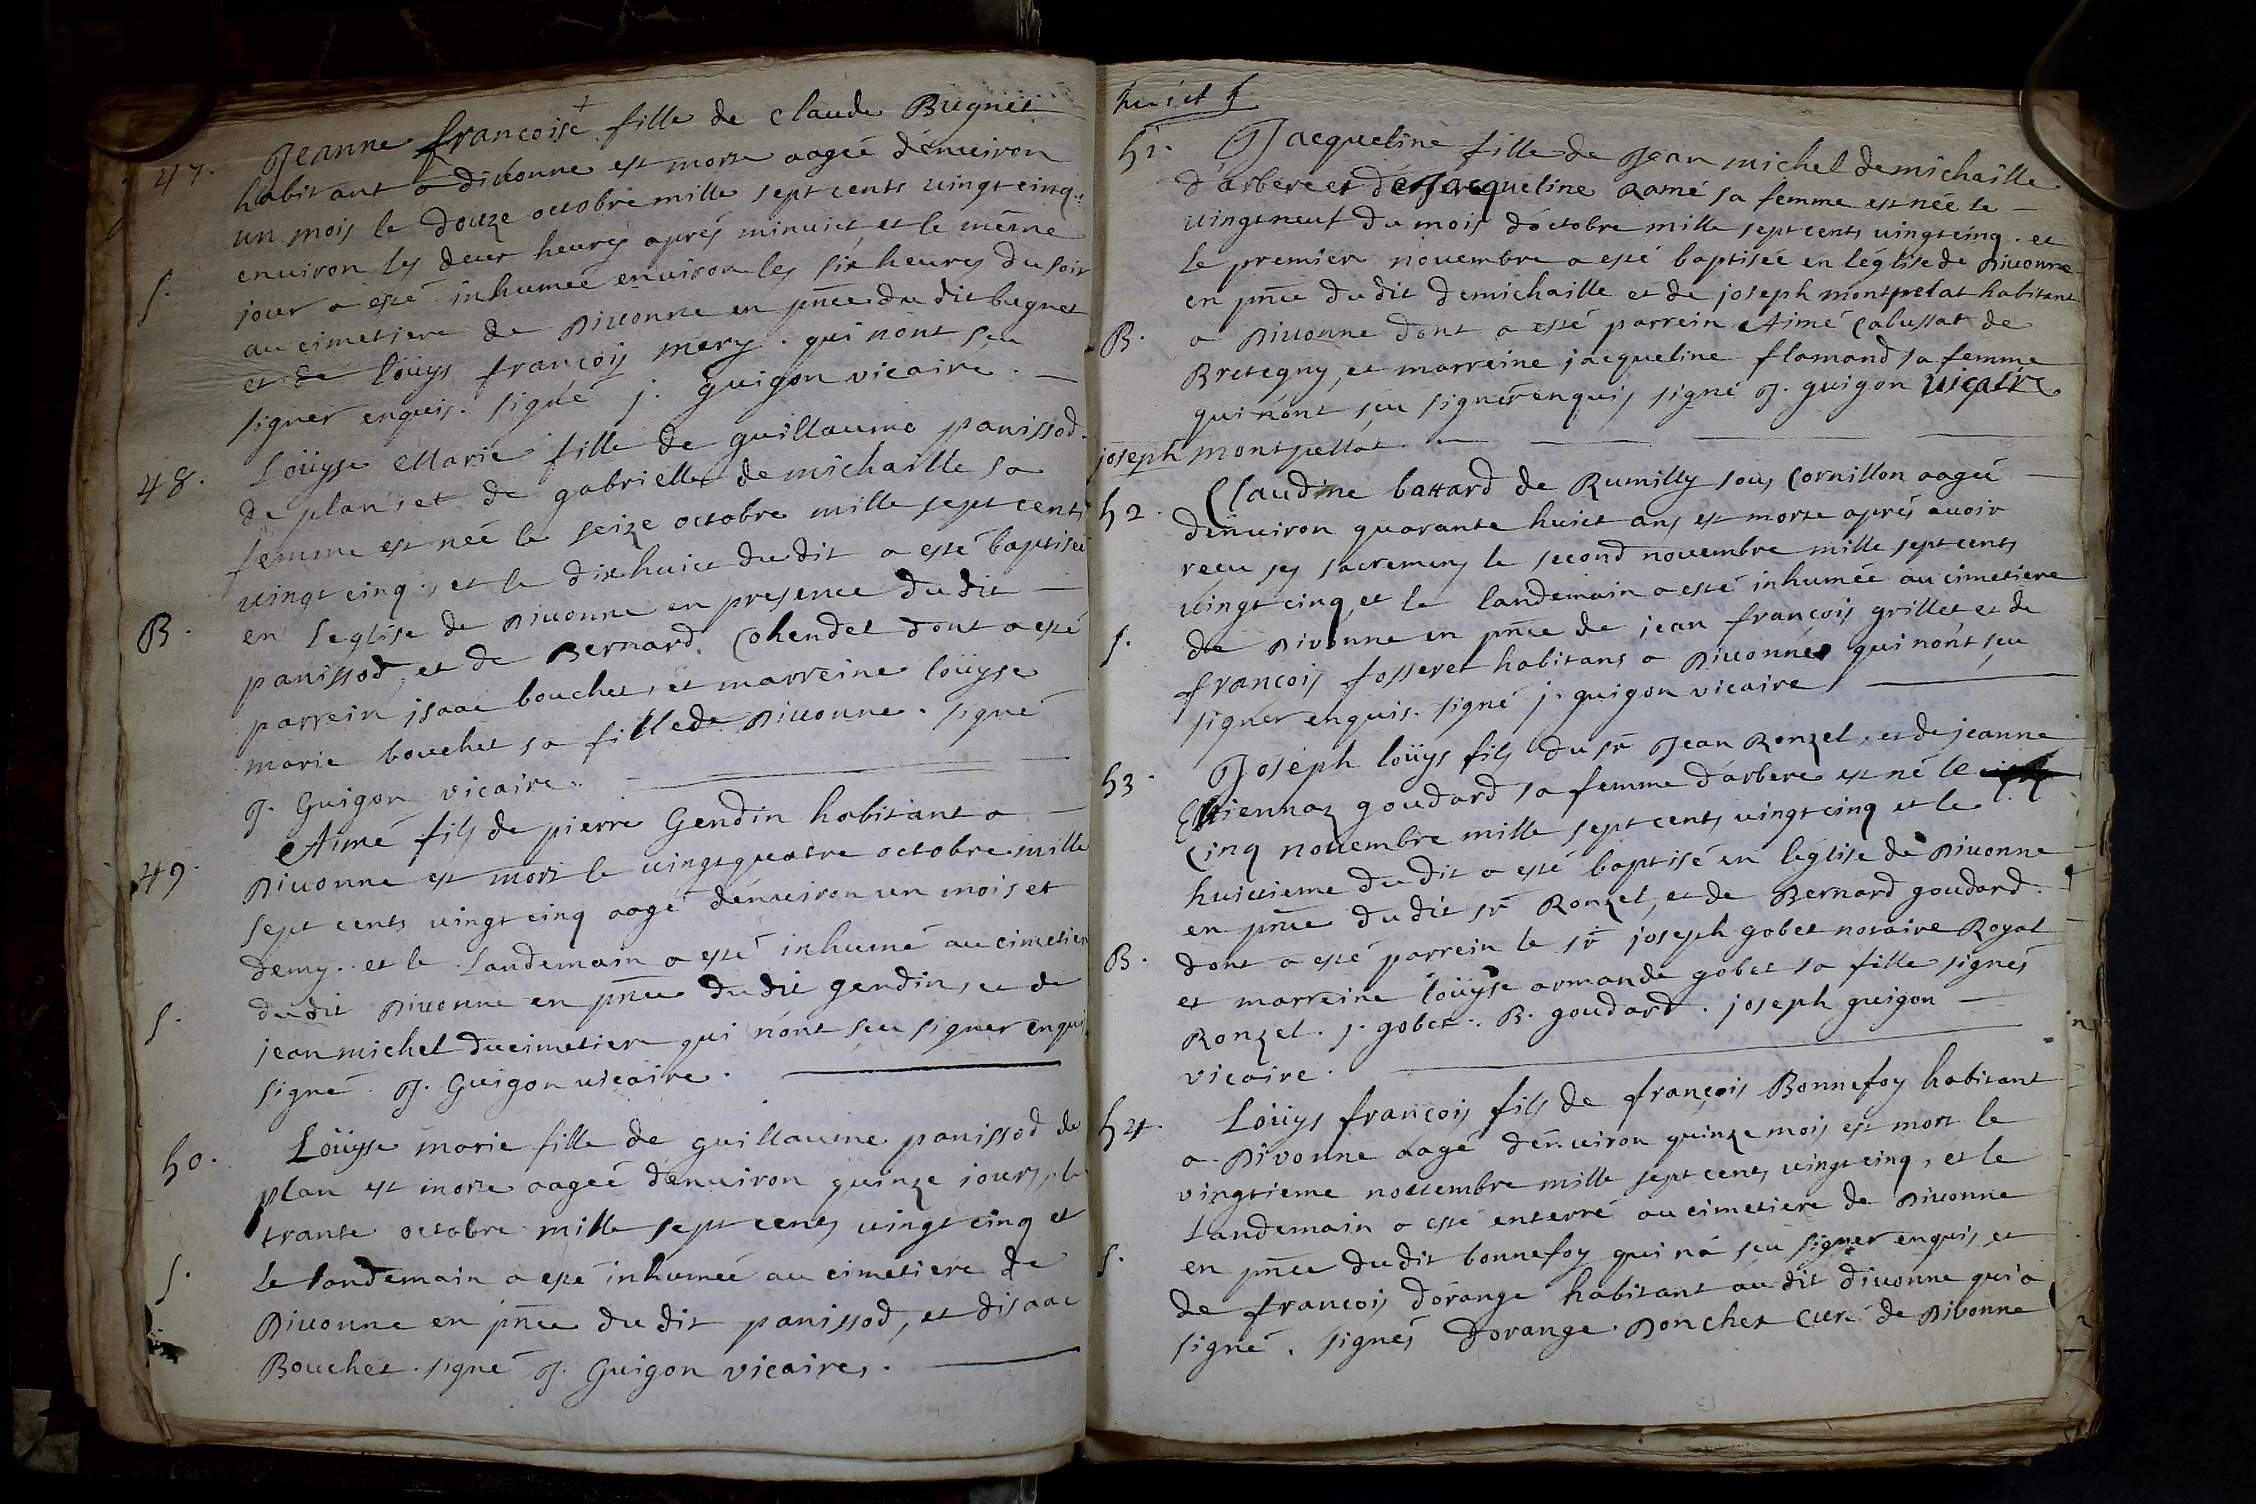 47. Jeanne françoise + fille de claude Bugnet
habitant a divonne est morte aagée d'enuiron
un mois le douze octobre mille sept cents vingt cinq.
enuiron les deux heures aprés minuict et le méme
S. jour a esté inhumée enuiron les six heures du soir
au cimetiere de Diuonne en pñce du dit bugnet
et de loüys françois mery. qui nont sçu
signer enquis. signé j. guigon vicaire. —
48. Loüyse Marie fille de guillaume panissod.
de plan, et de gabrielle de michaille sa
femme est née le seize octobre mille sept cents
vingt cinq, et le dix huict du dit a esté baptisée
B. en l'eglise de Diuonne en presence du dit —
panissod, et de Bernard. Cohendet dont a esté
parrein jsaac bouchet, et marreine loüyse
marie bouchet sa fille de Diuonne. signé
J. Guigon vicaire.
49. Aimé fils de pierre Gendin habitant a —
Diuonne est mort le vingt quatre octobre mille
sept cents vingt cinq aagé d'enuiron un mois et
demy. et le landemain a esté inhumé au cimetier
S. du dit Diuonne en pñce du dit gendin, et de
jean michel ducimetier qui n'ont sçu signer enquis
signé. J. Guigon vicaire.
50. Loüyse marie fille de guillaume panissod de
plan est morte aagée d'enuiron quinze jours, le
trante octobre mille sept cents vingt cinq et
S. le landemain a esté inhumée au cimetiere de
Diuonne en pñce du dit panissod, et disaac
Bouchet. signé J. Guigon vicaire.
huict f
51. Jacqueline fille de Jean michel demichaille
d'arbere et de Jacqueline Ramé sa femme est née le —
vingt neuf du mois d'octobre mille sept cents vingt cinq. et
le premier nouembre a esté baptisée en léglise de Diuonne
en pñce du dit demichaille et de joseph montpelat habitant
B. a Diuonne dont a esté parrein Aimé Cabussat de
Bretegny, et marreine jacqueline flamand sa femme
qui n'ont sçu signer enquis signé J. guigon vicaire
joseph montpellat.
52. Claudine battard de Rumilly sous Cornillon aagée —
denuiron quarante huict ans est morte aprés auoir
receu ses sacremens le second nouembre mille sept cents
vingt cinq, et le landemain a esté inhumée au cimetiere
S. de Divonne en pñce de jean françois grillet et de
françois fosseret habitans a Diuonne qui nont sçu
signer enquis. signé j. guigon vicaire
53. Joseph loüys fils du sr Jean Ronzel, et de jeanne
Etiennaz goudard sa femme d'arbere est né le
Cinq nouembre mille sept cents vingt cinq et le
huictieme du dit a esté baptisé en leglise de Diuonne
en pñce du dit sr Ronzel, et de Bernard goudard.
B. dont a esté parrein le sr joseph gobet notaire Royal
et marreine loüyse armande gobet sa fille signés
Ronzel. j. gobet. B. goudard. joseph guigon —
vicaire.
54. Loüys françois fils de françois Bonnefoy habitant
a Divonne aagé d'enuiron quinze mois est mort le
vingtieme nouembre mille sept cents vingt cinq, et le
landemain a esté enterré au cimetiere de Diuonne
S. en pñce du dit bonnefoy qui n'á sçu signer enquis, et
de françois d'orange habitant au dit diuonne qui a
signé. signés dorange. Donchet curé de Divonne